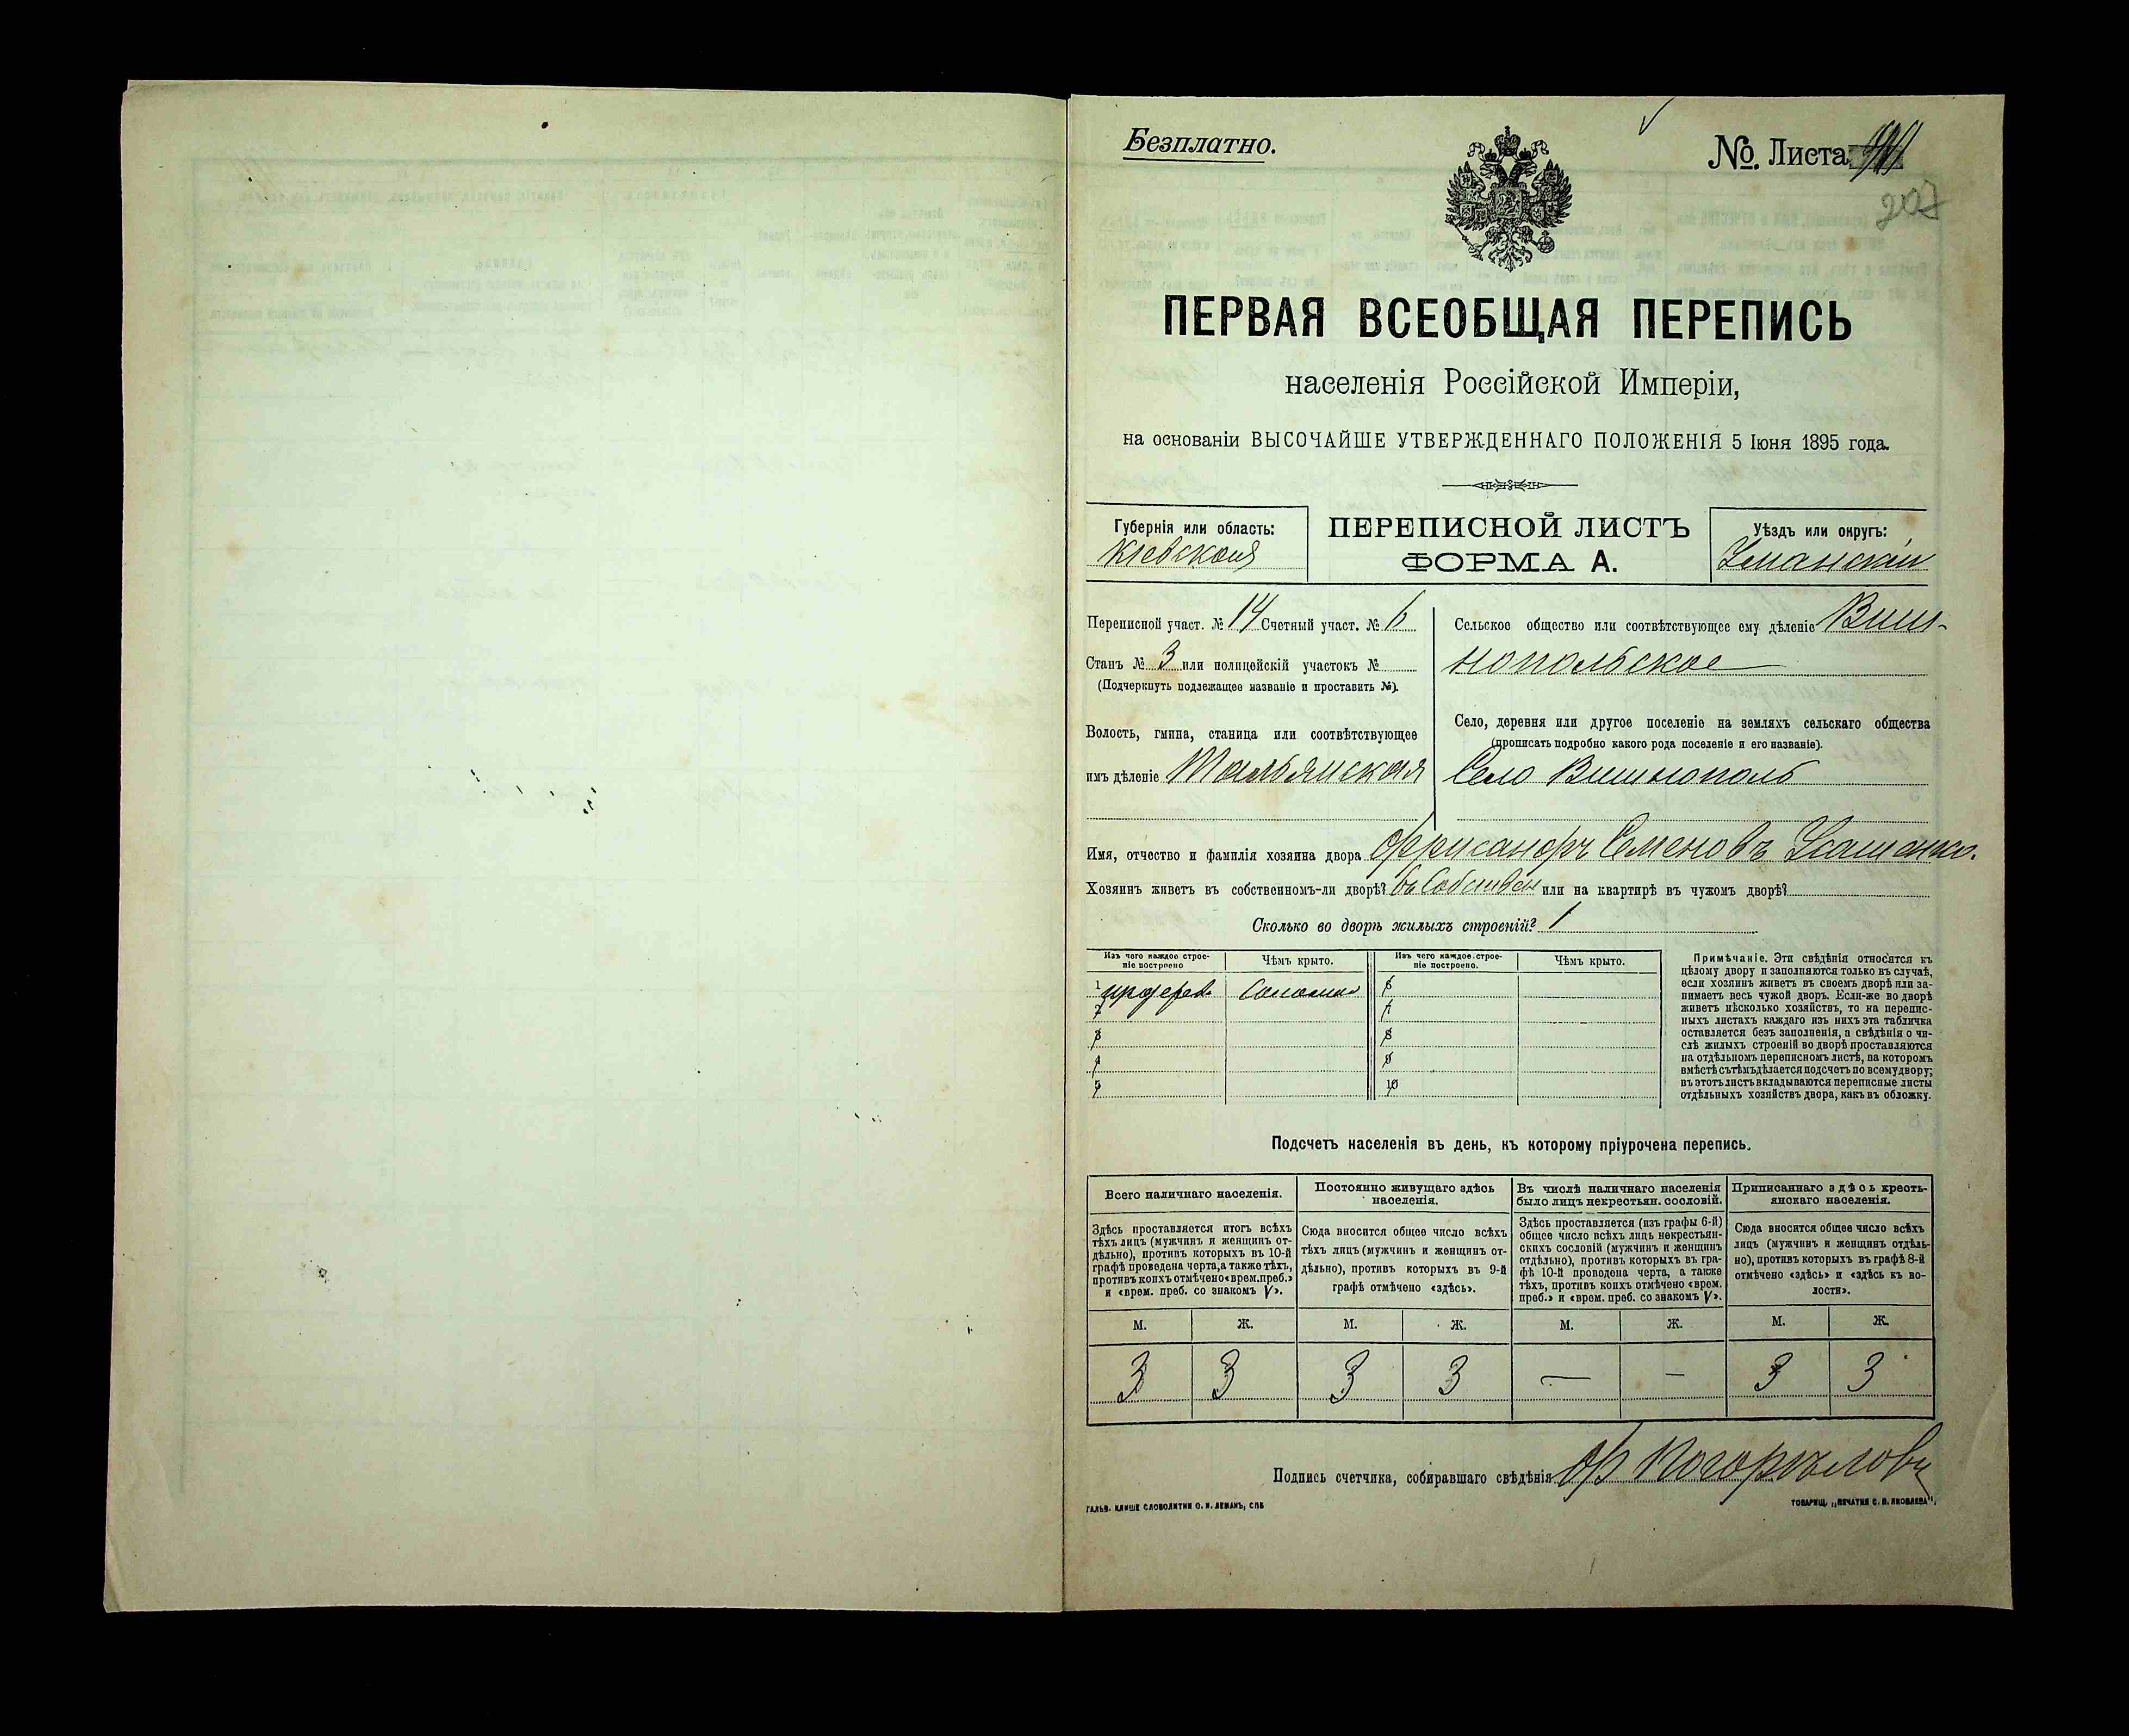 Безплатно.
№. Листа
207
ПЕРВАЯ ВСЕОБЩАЯ ПЕРЕПИСЬ
населенія Россійской Имперіи,
на основаніи ВЫСОЧАЙШЕ УТВЕРЖДЕННАГО ПОЛОЖЕНІЯ 5 Іюня 1895 года.
Губернія или область:
Кіевская
ПЕРЕПИСНОЙ ЛИСТЪ
ФОРМА А.
Уѣздъ или округъ:
Уманскій
Переписной участ. № 14 Счетный участ. № 6
Станъ № 3 или полицейскій участокъ №
(Подчеркнуть подлежащее названіе и проставить №).
Волость, гмина, станица или соотвѣтствующее
имъ дѣленіе Тальянская
Сельское общество или соотвѣтствующее ему дѣленіе Виш-
нопольское
Село, деревня или другое поселеніе на земляхъ сельскаго общества
(прописать подробно какого рода поселеніе и его названіе).
Село Вишнополь
Имя, отчество и фамилія хозяина двора Семеновъ
Хозяинъ живетъ въ собственномъ-ли дворѣ? въ собствен или на квартирѣ въ чужомъ дворѣ?
Сколько во дворѣ жилыхъ строеній? 1
Изъ чего каждое строе-
ніе построено
Чѣмъ крыто.
Изъ чего каждое строе-
ніе построено.
Чѣмъ крыто.
1 Солома 6
2 7
3 8
4 9
5 10
Примѣчаніе. Эти свѣдѣнія относятся къ
цѣлому двору и заполняются только въ случаѣ,
если хозяинъ живетъ въ своемъ дворѣ или за-
нимаетъ весь чужой дворъ. Если-же во дворѣ
живетъ нѣсколько хозяйствъ, то на перепис-
ныхъ листахъ каждаго изъ нихъ эта табличка
оставляется безъ заполненія, а свѣдѣнія о чи-
слѣ жилыхъ строеній во дворѣ проставляются
на отдѣльномъ переписномъ листѣ, на которомъ
вмѣстѣ съ тѣмъ дѣлается подсчетъ по всему двору;
въ этотъ листъ вкладываются переписные листы
отдѣльныхъ хозяйствъ двора, какъ въ обложку.
Подсчетъ населенія въ день, къ которому пріурочена перепись.
Всего наличнаго населенія.
Здѣсь проставляется итогъ всѣхъ
тѣхъ лицъ (мужчинъ и женщинъ от-
дѣльно), противъ которыхъ въ 10-й
графѣ проведена черта, а также тѣхъ,
противъ коихъ отмѣчено «врем. преб.»
и «врем. преб. со знакомъ V».
Постоянно живущаго здѣсь
населенія.
Сюда вносится общее число всѣхъ
тѣхъ лицъ (мужчинъ и женщинъ от-
дѣльно), противъ которыхъ въ 9-й
графѣ отмѣчено «здѣсь».
Въ числѣ наличнаго населенія
было лицъ некрестьян. сословій.
Здѣсь проставляется (изъ графы 6-й)
общее число всѣхъ лицъ некрестьян-
скихъ сословій (мужчинъ и женщинъ
отдѣльно), противъ которыхъ въ гра-
фѣ 10-й проведена черта, а также
тѣхъ, противъ коихъ отмѣчено «врем.
преб.» и «врем. преб. со знакомъ V».
Приписаннаго здѣсь кресть-
янскаго населенія.
Сюда вносится общее число всѣхъ
лицъ (мужчинъ и женщинъ отдѣль-
но), противъ которыхъ въ графѣ 8-й
отмѣчено «здѣсь» и «здѣсь къ во-
лости».
М. Ж. М. Ж. М. Ж. М. Ж.
3 3 3 3 — — 3 3
Подпись счетчика, собиравшаго свѣдѣнія
ГАЛЬВ. КЛИШЕ СЛОВОЛИТНИ О. И. ЛЕМАНЪ, СПБ
ТОВАРИЩ. „ПЕЧАТНЯ С. П. ЯКОВЛЕВА“.